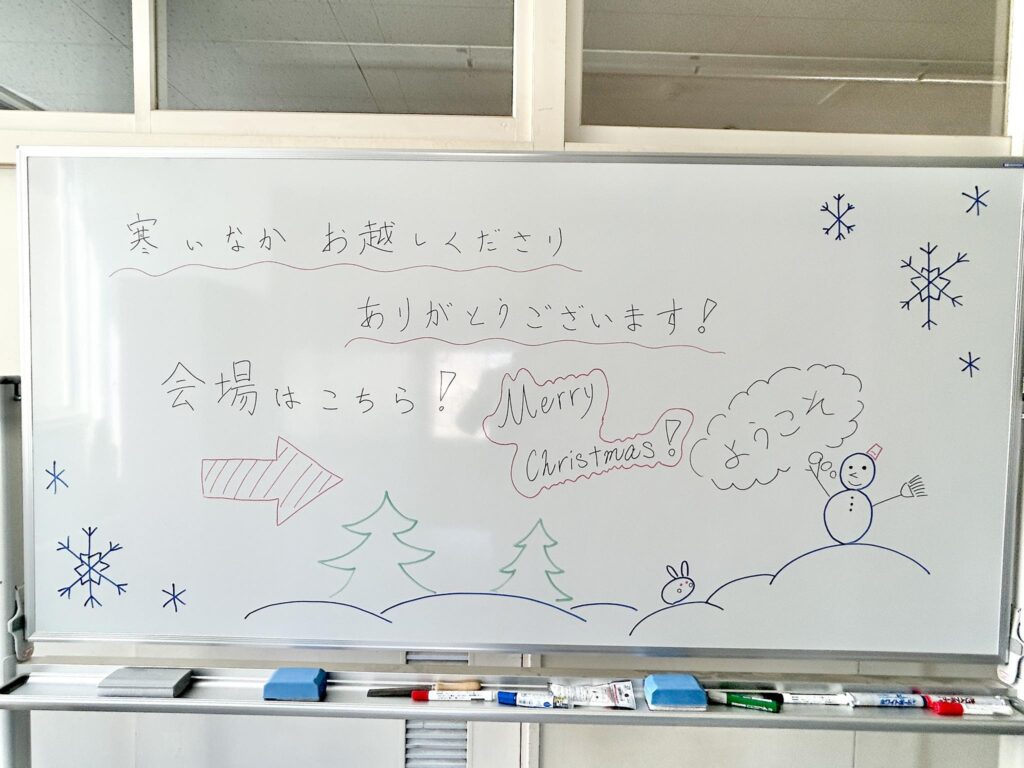 寒いなか お越しくださり
ありがとうございます!
会場はこちら!
Merry
Christmas!
ようこそ